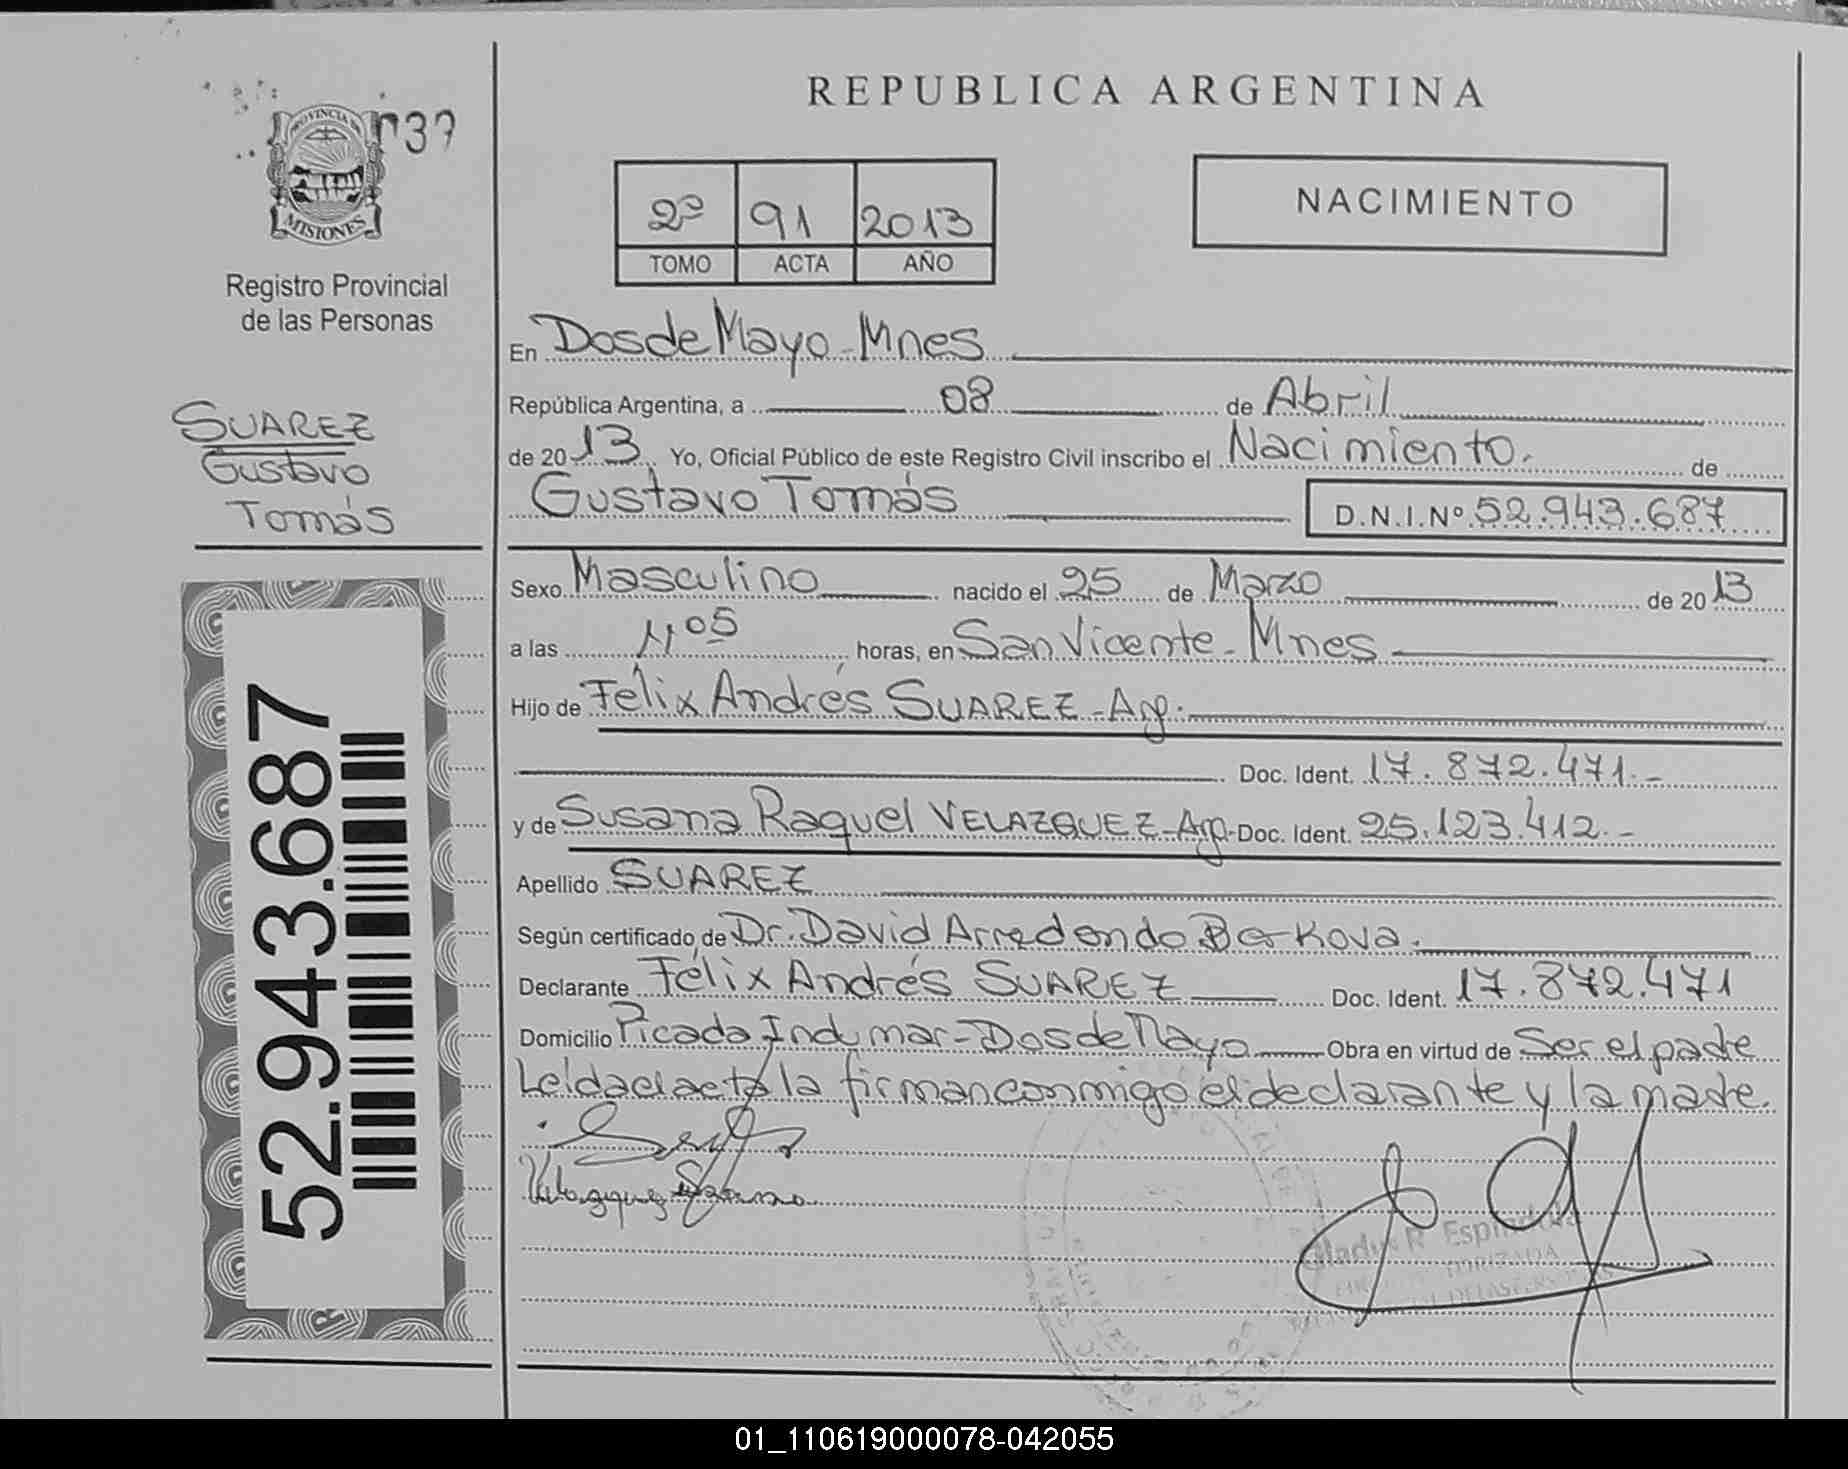 REPUBLICA ARGENTINA
PROVINCIA DE
MISIONES
039
Registro Provincial
de las Personas
2º 91 2013
TOMO ACTA AÑO
NACIMIENTO
SUAREZ
Gustavo
Tomás
52.943.687
En Dos de Mayo - Mnes
República Argentina, a 08 de Abril
de 2013. Yo, Oficial Público de este Registro Civil inscribo el Nacimiento. de
Gustavo Tomás D.N.I.Nº 52.943.687
Sexo Masculino nacido el 25 de Marzo de 2013
a las 11º5 horas, en San Vicente - Mnes
Hijo de Félix Andrés SUAREZ - Arg.
Doc. Ident. 17.872.471.-
y de Susana Raquel VELAZQUEZ - Arg. Doc. Ident. 25.123.412.-
Apellido SUAREZ
Según certificado de Dr. David Arredondo
Declarante Félix Andrés SUAREZ Doc. Ident. 17.872.471
Domicilio Picada Indumar - Dos de Mayo Obra en virtud de Ser el padre
Leída el acta la firman conmigo el declarante y la madre.
Velazquez Susana
Gladys R. Espindola
01_110619000078-042055